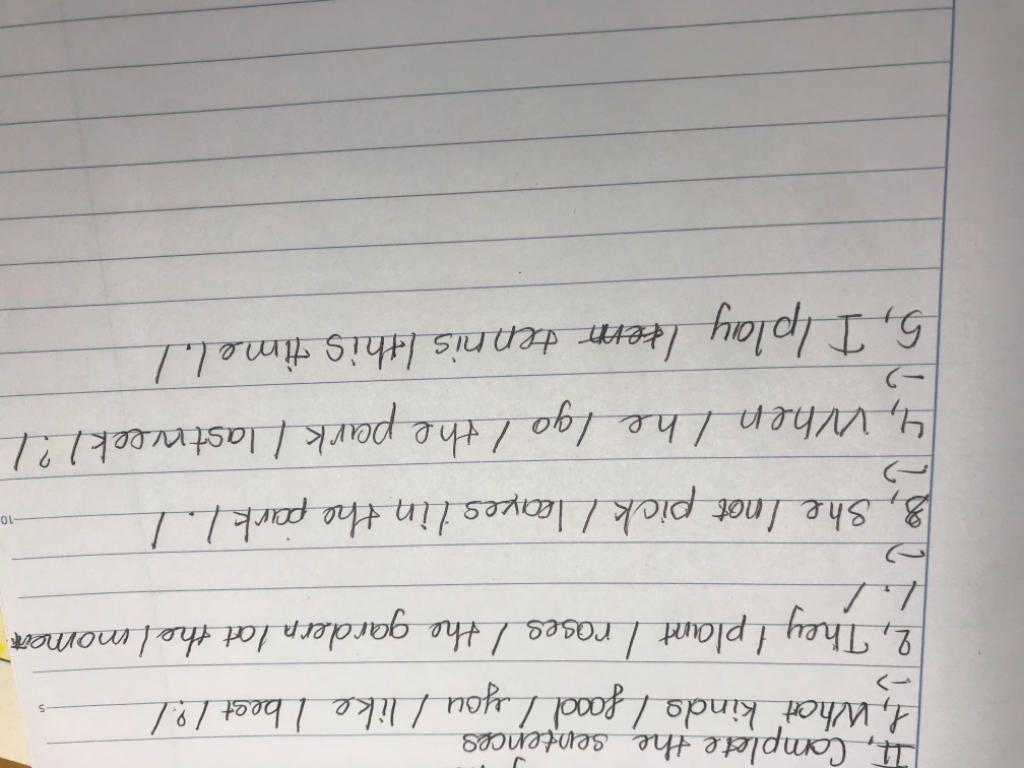 II, Complete the sentences
1, What kinds / food / you / like / best / ? /
->
2, They / plant / roses / the gardern / at the / moment
/ . /
->
3, She / not pick / leaves / in the park / . /
->
4, When / he / go / the park / last week / ? /
->
5, I / play / tenn tennis / this time / . /
10
5